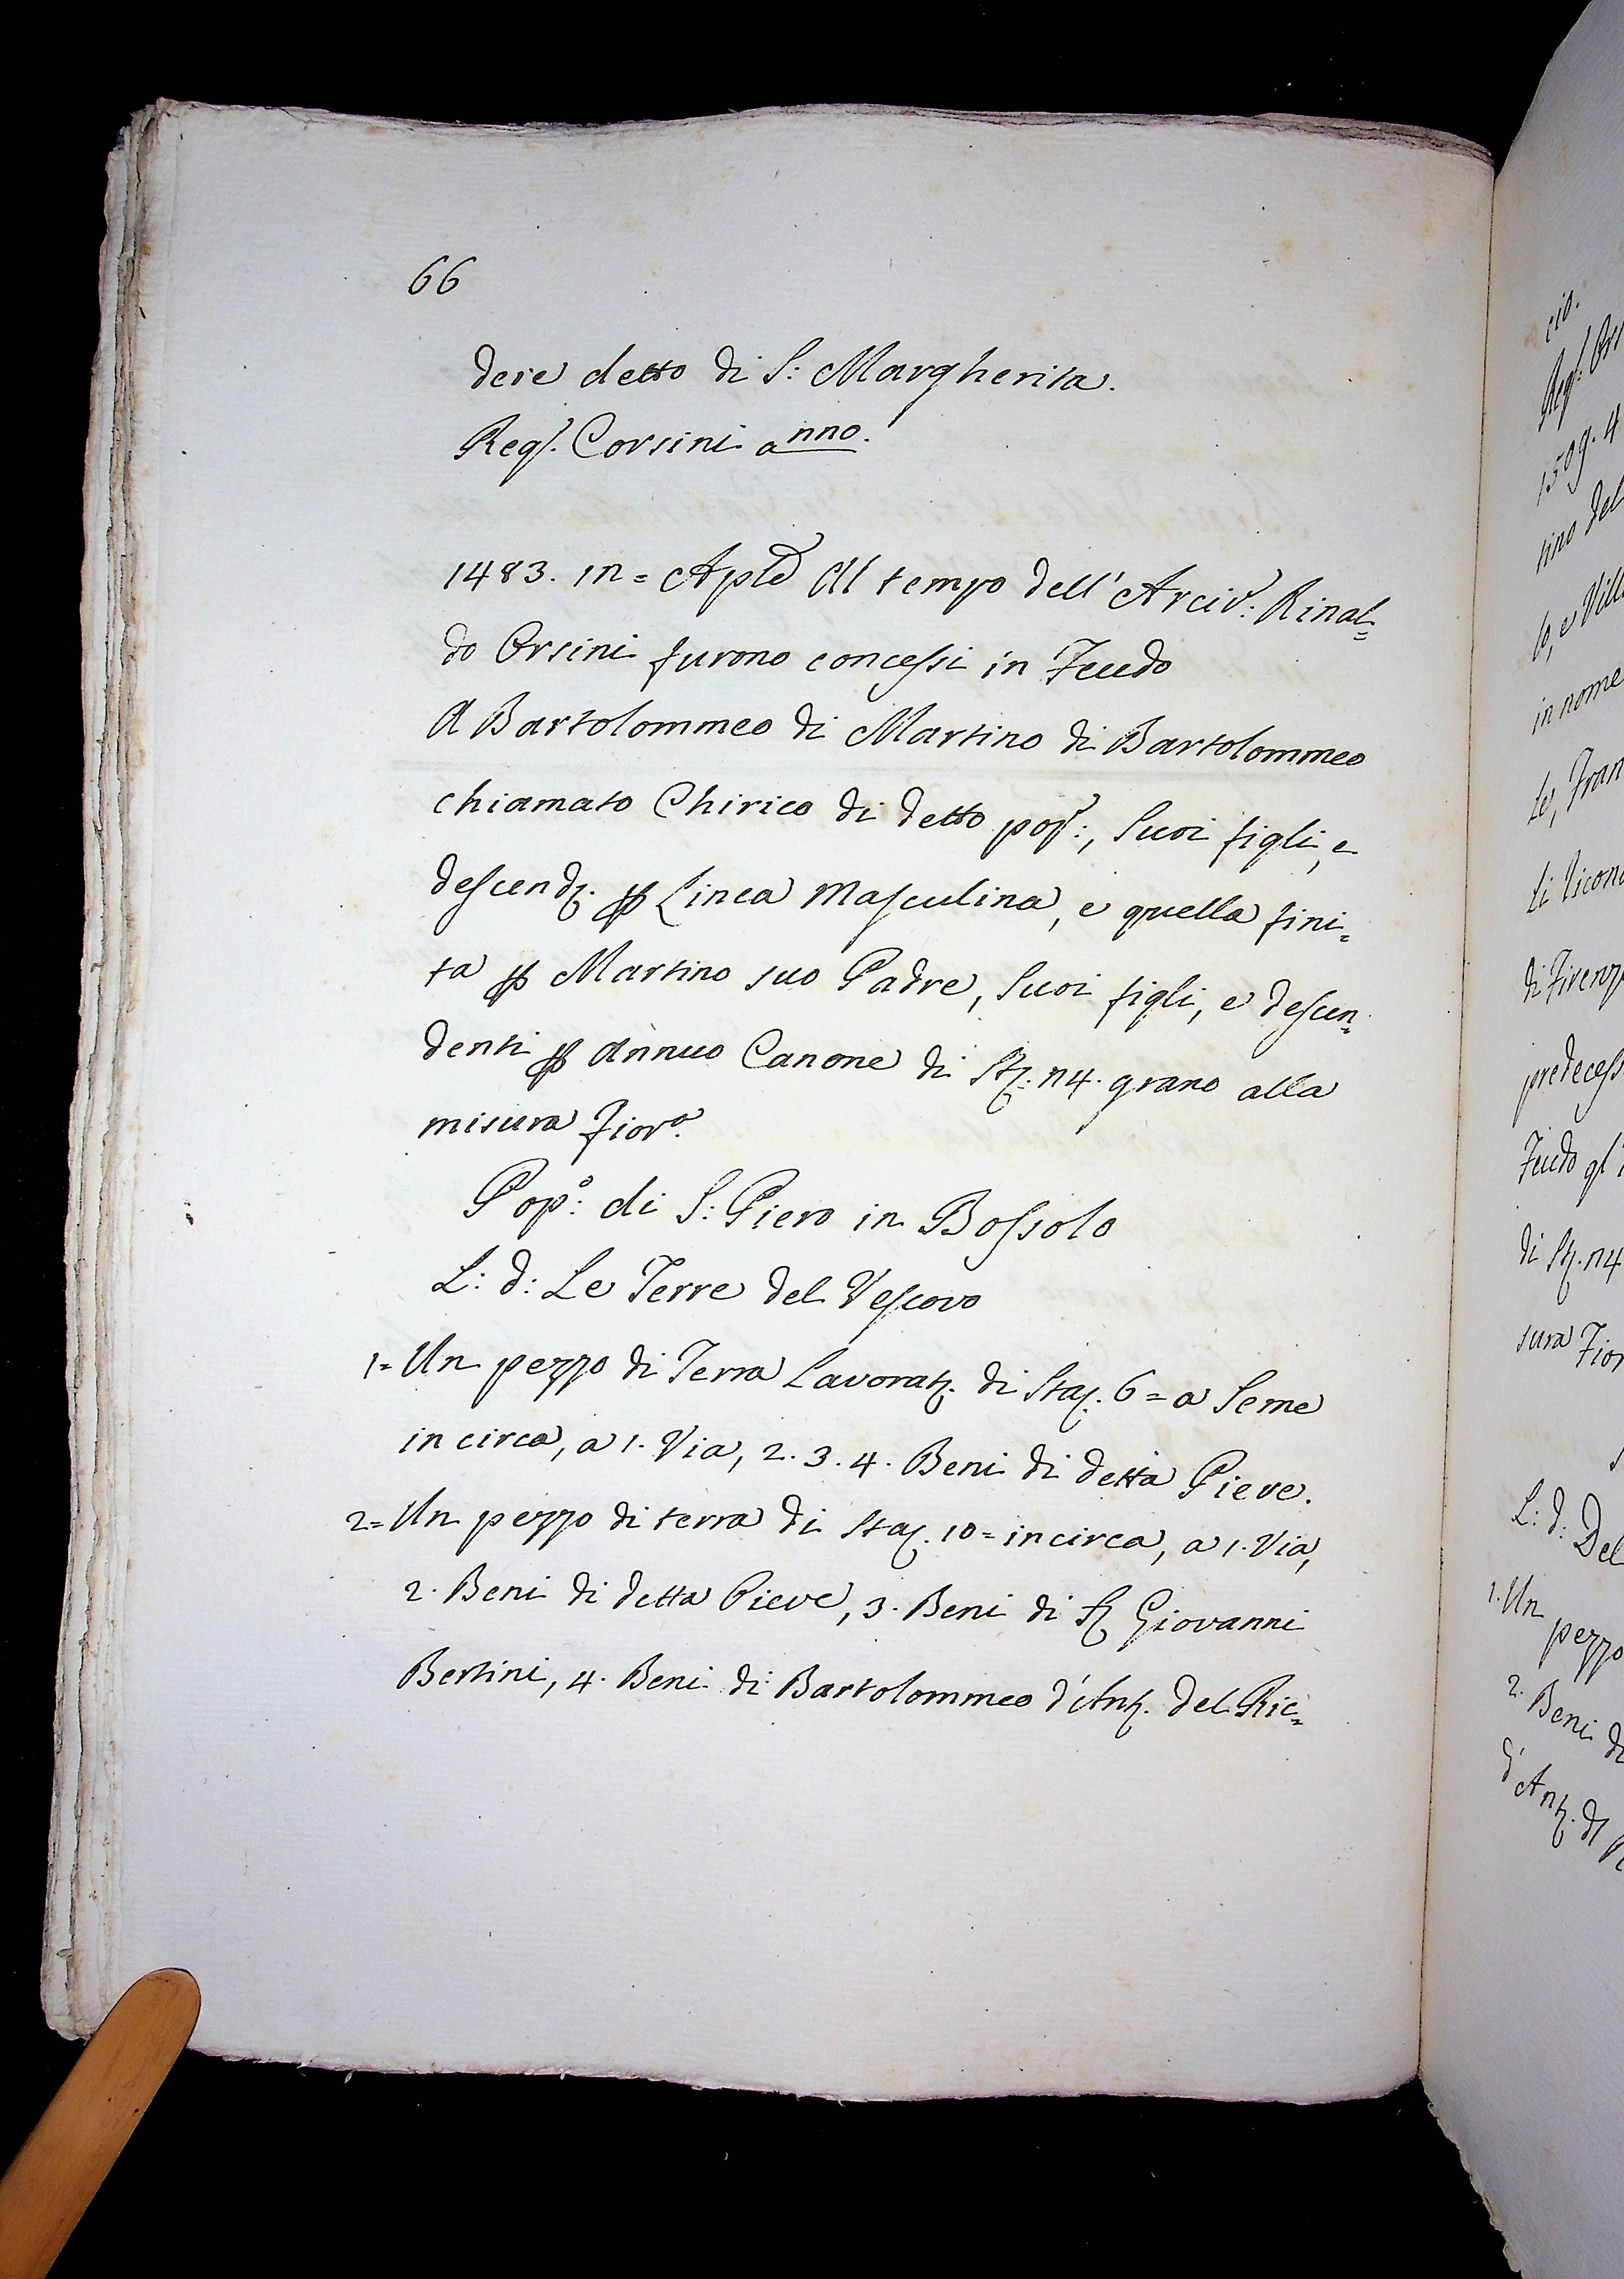 66
dere detto di S: Margherita.
Reg. Corsini anno.
1483. in = Aple Al tempo dell' Arciv: Rinal=
do Orsini furono concessi in Feudo
A Bartolommeo di Martino di Bartolommeo
chiamato Chirico di detto pop:, Suoi figli, e
descend. p Linea Masculina, e quella fini=
ta p Martino suo Padre, Suoi figli, e descen=
denti p Annuo Canone di St. n4. grano alla
misura Fiora.
Popo: di S: Piero in Bossolo
L: d: Le Terre del Vescovo
1= Un pezzo di Terra Lavorat. di Sta. 6= a Seme
in circa, a 1. Via, 2. 3. 4. Beni di detta Pieve.
2= Un pezzo di terra di Sta. 10= in circa, a 1. Via,
2. Beni di detta Pieve, 3. Beni di S Giovanni
Bertini, 4. Beni di Bartolommeo d'Ant. del Ric=
cio.
1509. 4
tino del
lo, e Vill
in nome
te, Fran
di Firenz
predecess
Feudo gl'
di St. n4
sura Fior
L: d: Del
1. Un pezzo
2. Beni di
d'Ant. d